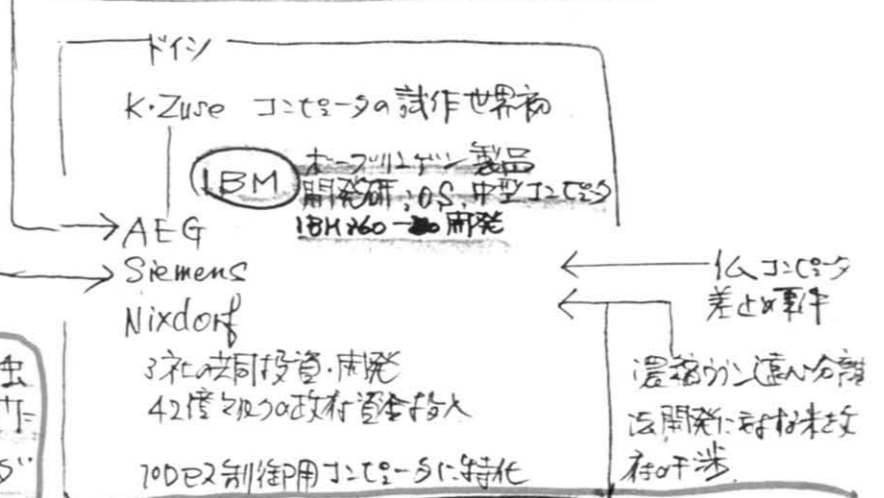 ドイツ
K・Zuse コンピュータの試作世界初
IBM
ボーブリンゲン製品
開発研:OS、中型コンピュータ
IBM360 開発
AEG
Siemens
Nixdorf
3社の共同投資・開発
42億マルクの政府資金投入
プロセス制御用コンピュータに特化
仏コンピュータ
差止め事件
濃縮ウラン遠心分離
法開発に対する米政
府の干渉